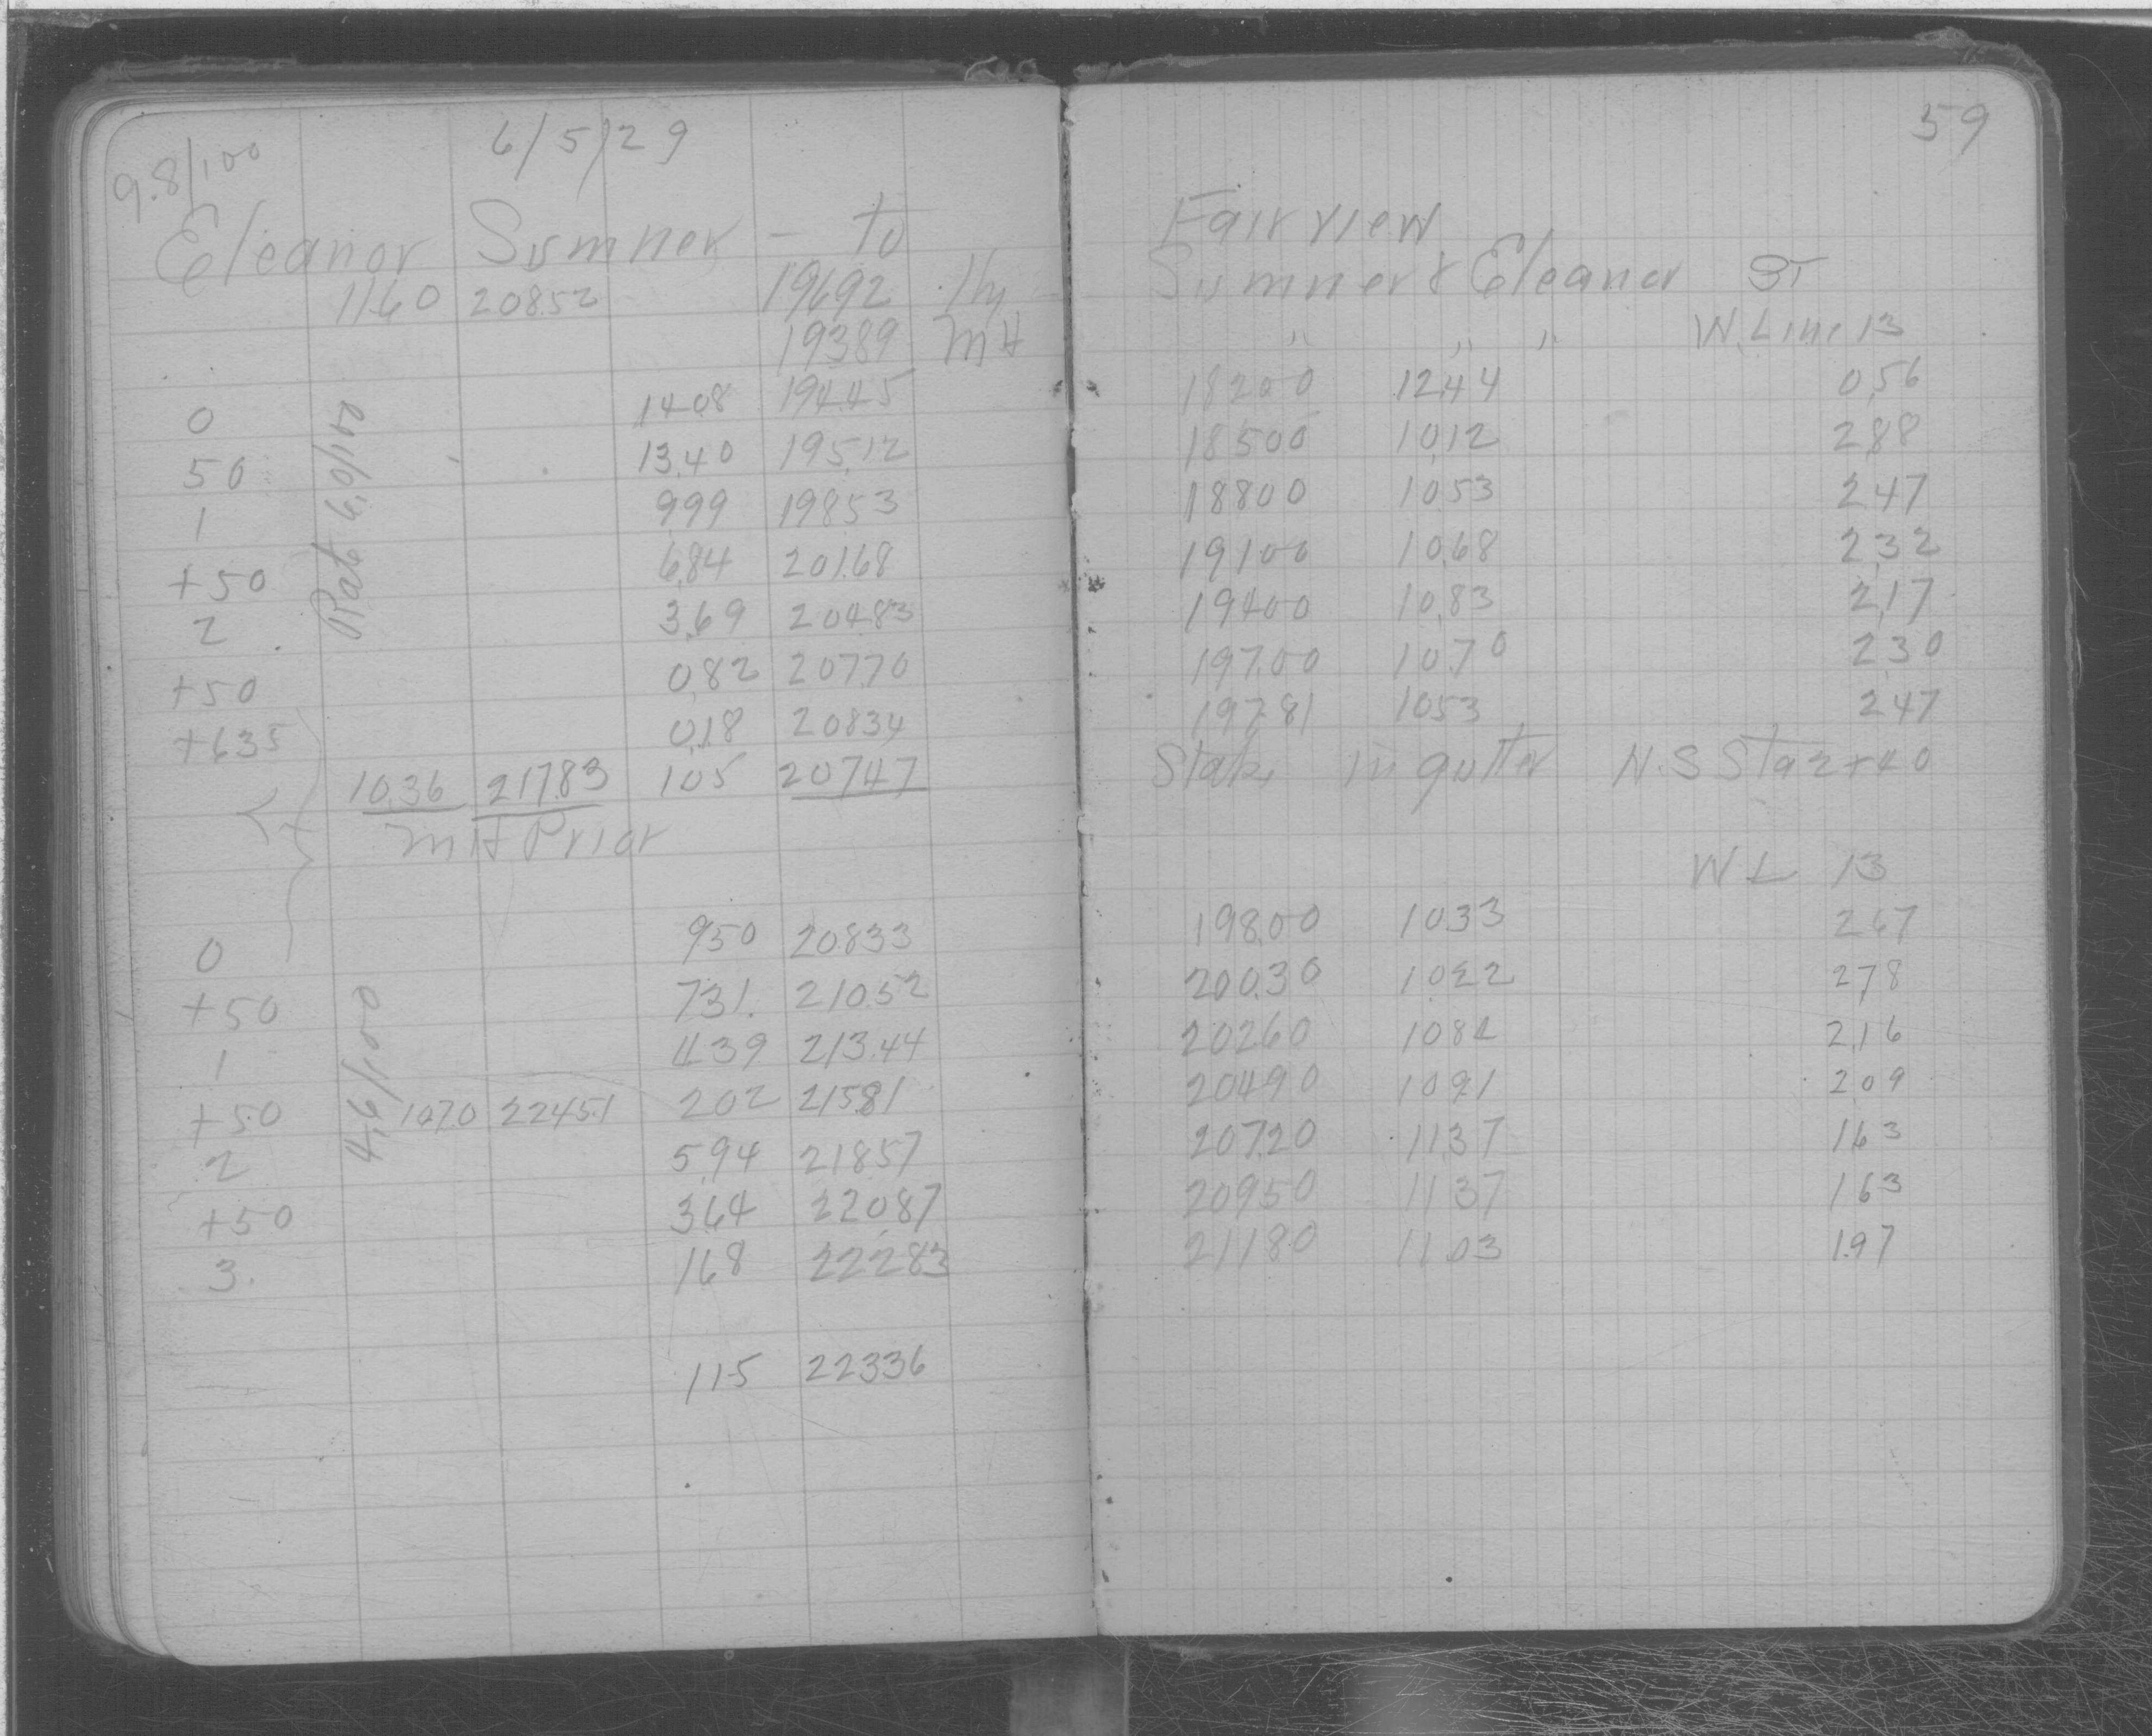 9.8/100 6/5/29
Eleanor Sumner - to
1160 20852 19692 Hy
19389 MH
0 1408 19445
50 13.40 195.12
1 999 19853
Rate 6.0/100
+50 6.84 201.68
2 3.69 20483
+50 0.82 207.70
+635 0.18 20834
10.36 21783 105 20747
MH Prior
0 950 20833
+50 731. 210.52
1 439 213.44
4.6/100
+50 1070 22451 202 21581
2 594 21857
+50 364 22087
3 168 22283
115 22336
59
Fairview
Sumner & Eleanor ST
" " " W. Line 13
18200 12.44 0.56
18500 10.12 2.88
18800 10.53 2.47
19100 10.68 2.32
19400 10.83 2.17
197.00 10.70 2.30
197.81 1053 2.47
Stake in gutter N.S Sta 2+40
WL 13
198.00 1033 267
200.30 1022 278
20260 1084 2.16
20490 1091 209
207.20 1137 163
20950 1137 163
21180 1103 197